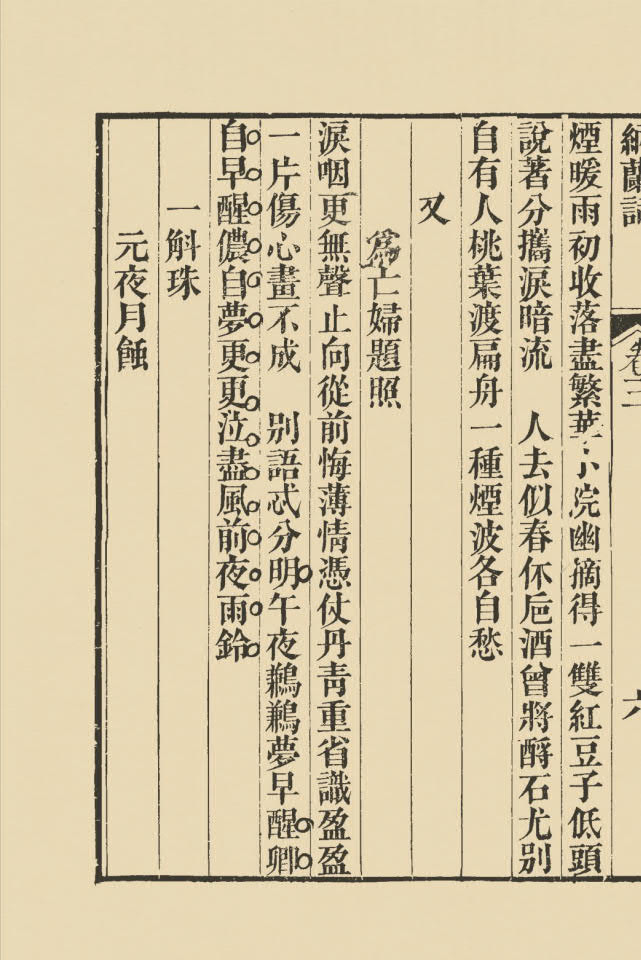 納蘭詞 卷三 六
煙暖雨初收落盡繁華小院幽摘得一雙紅豆子低頭
說著分攜淚暗流　人去似春休卮酒曾將酹石尤別
自有人桃葉渡扁舟一種煙波各自愁
又
爲亡婦題照
淚咽更無聲止向從前悔薄情憑仗丹青重省識盈盈
一片傷心畫不成　別語忒分明午夜鶼鶼夢早醒卿
自早醒儂自夢更更泣盡風前夜雨鈴
一斛珠
元夜月蝕